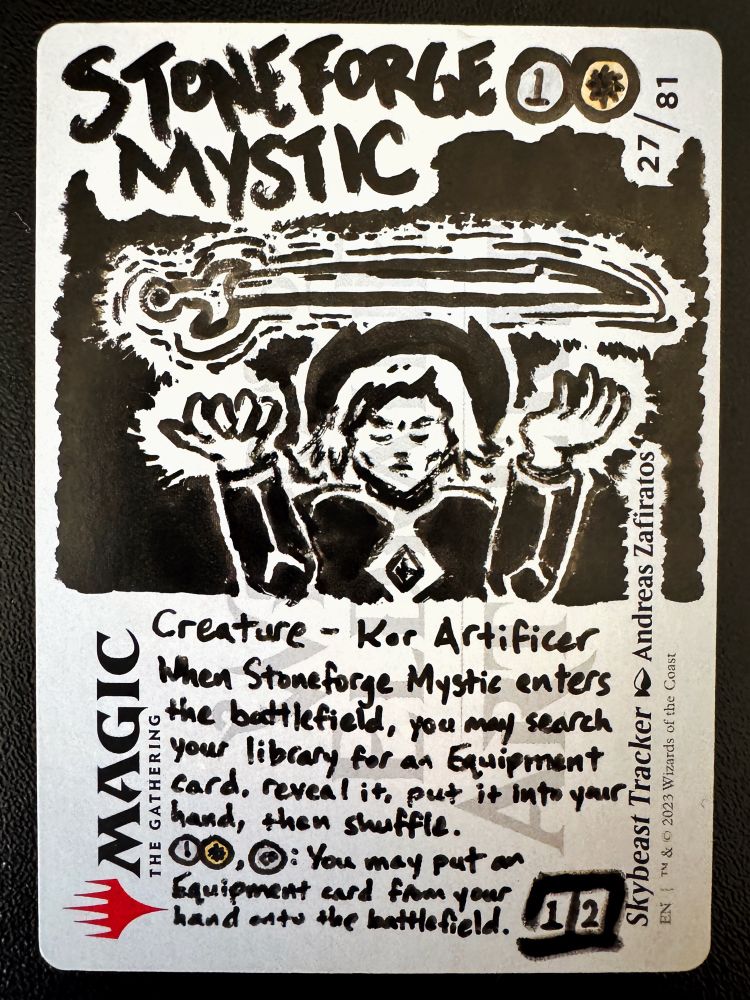 STONEFORGE 1
MYSTIC
27/81
Creature - Kor Artificer
When Stoneforge Mystic enters
the battlefield, you may search
your library for an Equipment
card, reveal it, put it into your
hand, then shuffle.
1 , : You may put an
Equipment card from your
hand onto the battlefield.
1/2
MAGIC
THE GATHERING
Skybeast Tracker Andreas Zafiratos
EN ™ & © 2023 Wizards of the Coast
ART